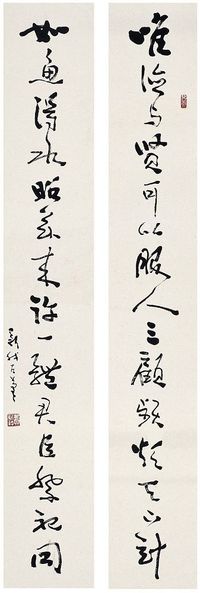 唯德与贤可以服人三顾频烦天下计
如鱼得水昭兹来许一体君臣祭祀同